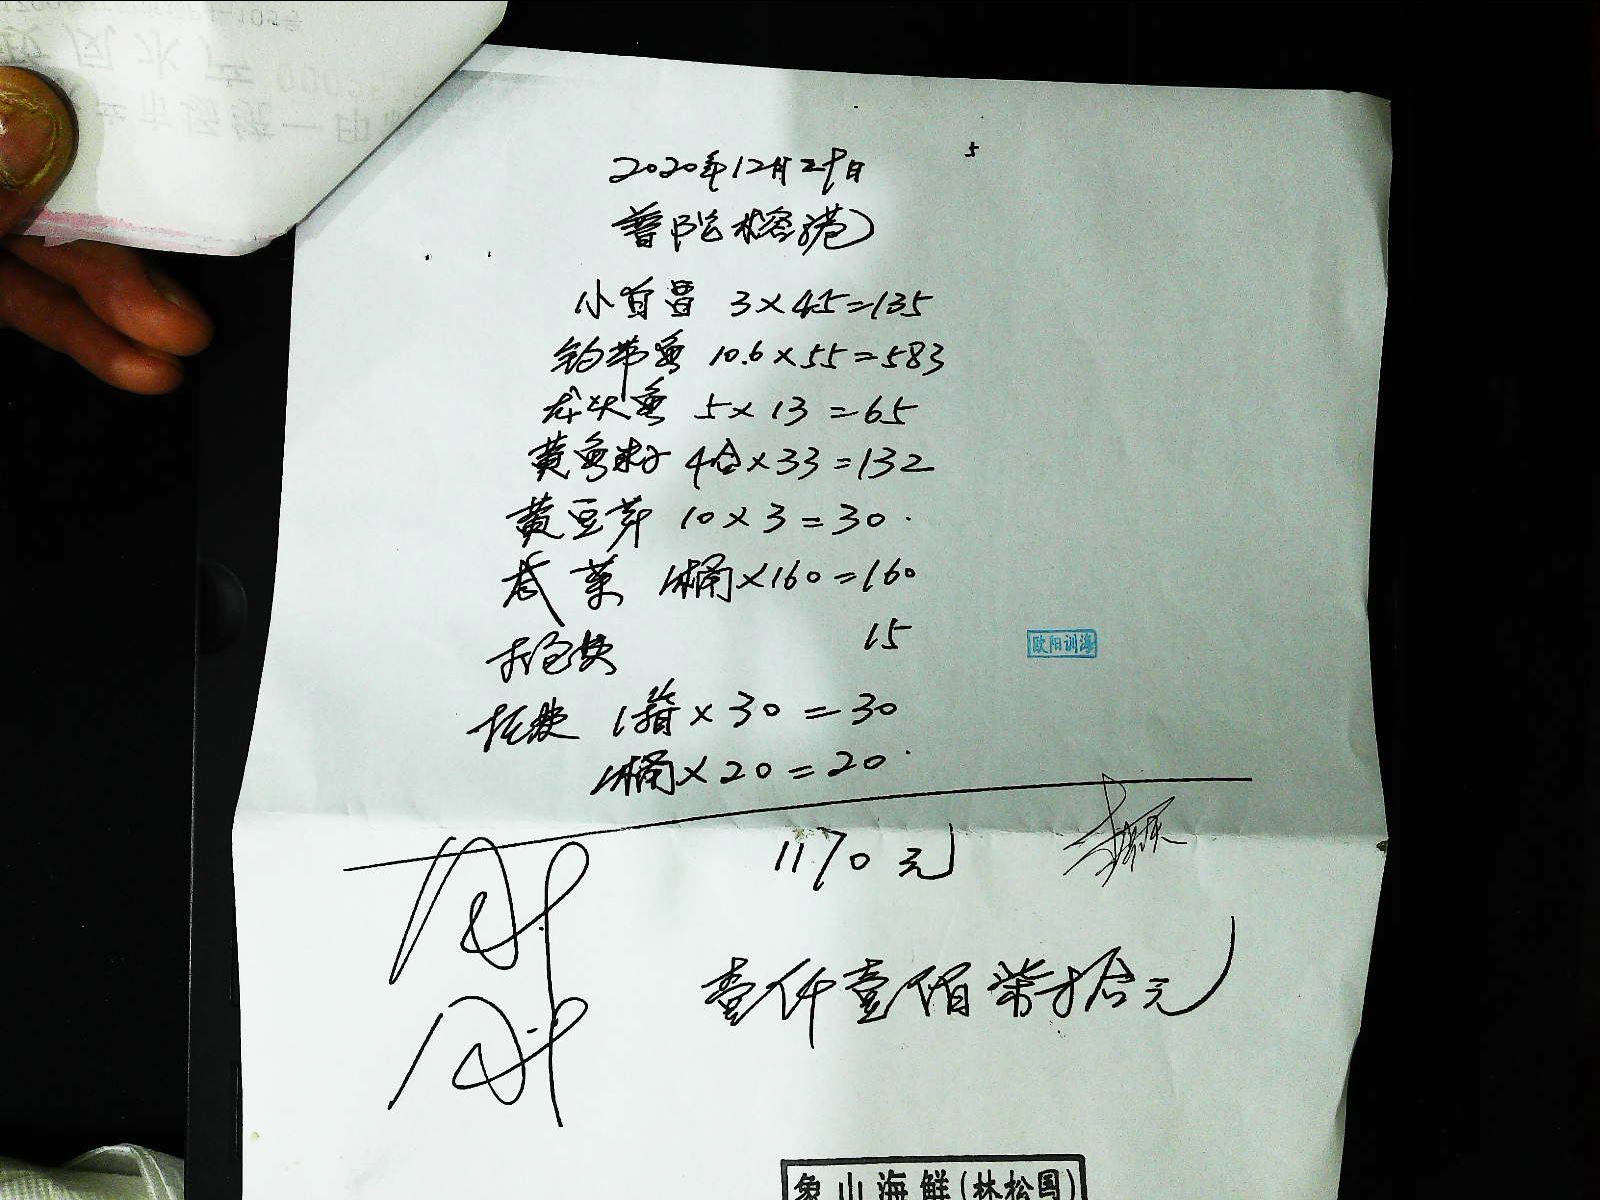 2020年12月29日
普陀榕港
小首昌 3×45=135
钓带鱼 10.6×55=583
龙头鱼 5×13=65
黄鱼籽 4合×33=132
黄豆芽 10×3=30
菜 1桶×160=160
15
欧阳训海
1箱×30=30
1桶×20=20
1170元
壹仟壹佰柒拾元
象山海鲜(林松国)